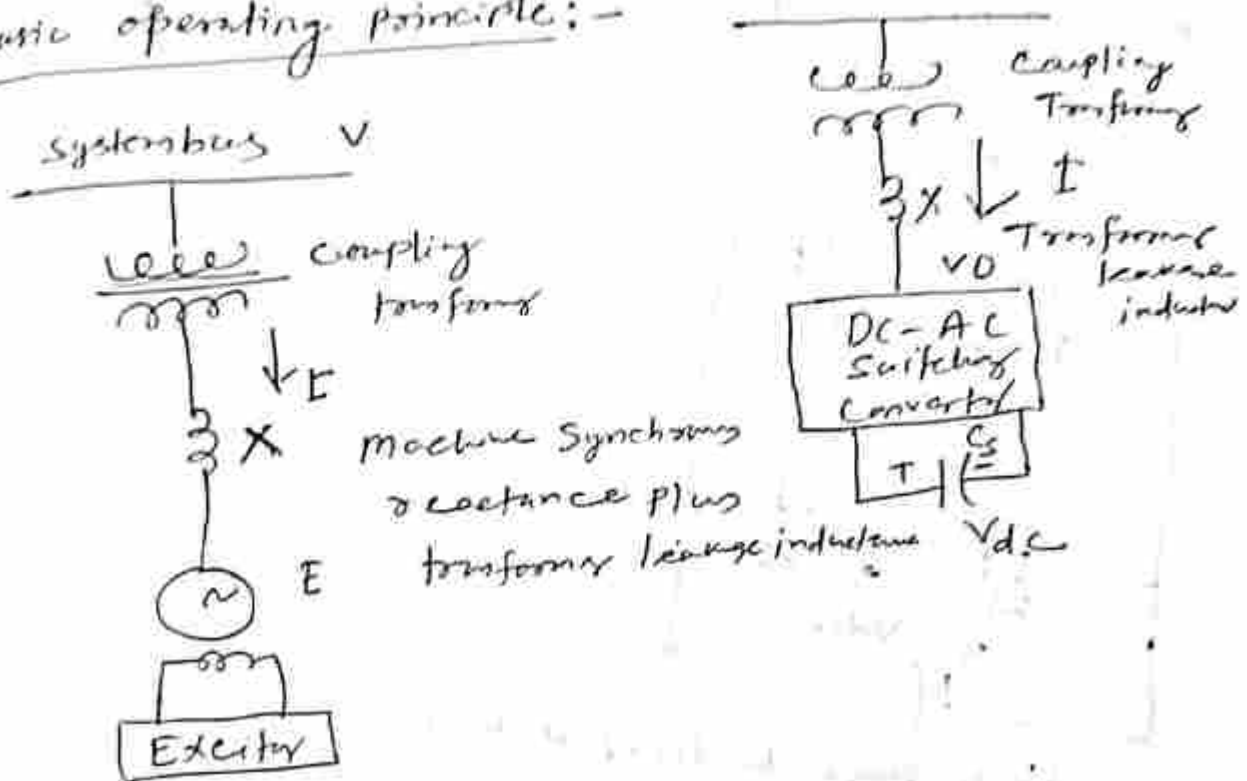 operating principle:-
System bus V
coupling
transformer
I
X
Machine Synchronous
reactance plus
transformer leakage inductance
E
Exciter
Coupling
Transformer
I
X
Transformer
leakage
inductor
VO
DC-AC
Switching
Converter
Cs
Vd.c